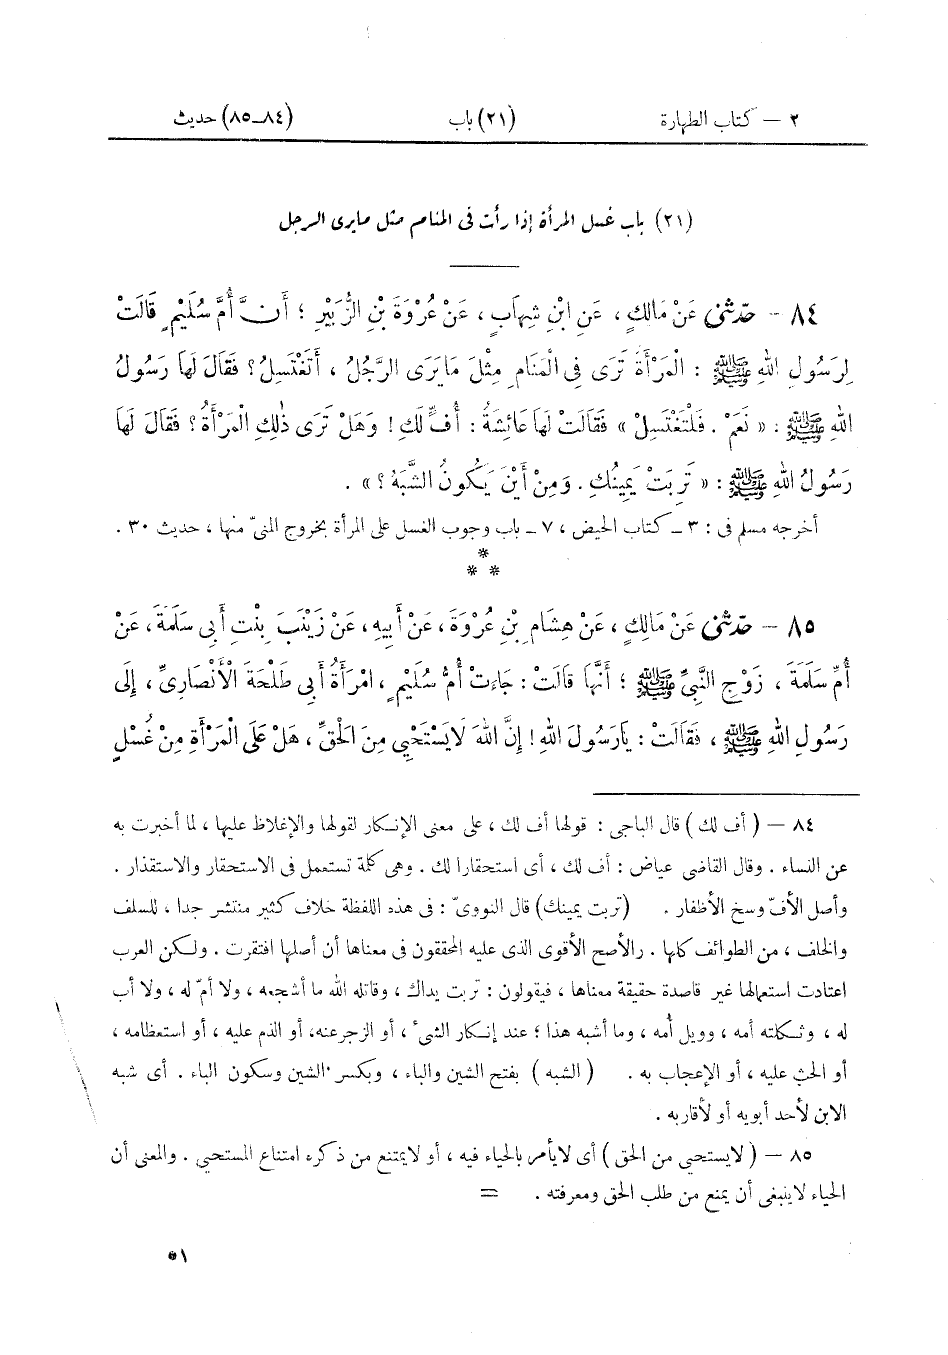 ٢ – كتاب الطهارة (٢١) باب (٨٤ـ٨٥) حديث
(٢١) باب غسل المرأة إذا رأت فى المنام مثل مايرى الرجل
٨٤ – حَدَّثَنِى عَنْ مَالِكٍ ، عَنِ ابْنِ شِهَابٍ ، عَنْ عُرْوَةَ بْنِ الزُّبَيْرِ ؛ أَنَّ أُمَّ سُلَيْمٍ قَالَتْ
لِرَسُولِ اللهِ ﷺ : الْمَرْأَةُ تَرَى فِى الْمَنَامِ مِثْلَ مَا يَرَى الرَّجُلُ ، أَتَغْتَسِلُ؟ فَقَالَ لَهَا رَسُولُ
اللهِ ﷺ : « نَعَمْ . فَلْتَغْتَسِلْ » فَقَالَتْ لَهَا عَائِشَةُ : أُفٍّ لَكِ ! وَهَلْ تَرَى ذٰلِكِ الْمَرْأَةُ؟ فَقَالَ لَهَا
رَسُولُ اللهِ ﷺ : « تَرِبَتْ يَمِينُكِ . وَمِنْ أَيْنَ يَكُونُ الشَّبَهُ ؟ » .
أخرجه مسلم فى : ٣ ـ كتاب الحيض ، ٧ ـ باب وجوب الغسل على المرأة بخروج المنىّ منها ، حديث ٣٠ .
*
* *
٨٥ – حَدَّثَنِى عَنْ مَالِكٍ ، عَنْ هِشَامِ بْنِ عُرْوَةَ ، عَنْ أَبِيهِ ، عَنْ زَيْنَبَ بِنْتِ أَبِى سَلَمَةَ ، عَنْ
أُمِّ سَلَمَةَ ، زَوْجِ النَّبِىِّ ﷺ ؛ أَنَّهَا قَالَتْ : جَاءَتْ أُمُّ سُلَيْمٍ ، امْرَأَةُ أَبِى طَلْحَةَ الْأَنْصَارِىِّ ، إِلَى
رَسُولِ اللهِ ﷺ ، فَقَالَتْ : يَارَسُولَ اللهِ ! إِنَّ اللهَ لَا يَسْتَحْيِى مِنَ الْحَقِّ ، هَلْ عَلَى الْمَرْأَةِ مِنْ غُسْلٍ
٨٤ – ( أف لك ) قال الباجى : قولها أف لك ، على معنى الإنكار لقولها والإغلاظ عليها ، لما أخبرت به
عن النساء . وقال القاضى عياض : أف لك ، أى استحقارا لك . وهى كلمة تستعمل فى الاستحقار والاستقذار .
وأصل الأفّ وسخ الأظفار . (تربت يمينك) قال النووىّ : فى هذه اللفظة خلاف كثير منتشر جدا ، للسلف
والخلف ، من الطوائف كلها . والأصح الأقوى الذى عليه المحققون فى معناها أن أصلها افتقرت . ولكن العرب
اعتادت استعمالها غير قاصدة حقيقة معناها ، فيقولون : تربت يداك ، وقاتله الله ما أشجعه ، ولا أمّ له ، ولا أب
له ، وثكلته أمه ، وويل أمه ، وما أشبه هذا ؛ عند إنكار الشىء ، أو الزجر عنه، أو الذم عليه ، أو استعظامه ،
أو الحث عليه ، أو الإعجاب به . ( الشبه ) بفتح الشين والباء ، وبكسر الشين وسكون الباء . أى شبه
الابن لأحد أبويه أو لأقاربه .
٨٥ – ( لايستحيى من الحق ) أى لايأمر بالحياء فيه ، أو لايمتنع من ذكره امتناع المستحيى . والمعنى أن
الحياء لاينبغى أن يمنع من طلب الحق ومعرفته . =
٥١